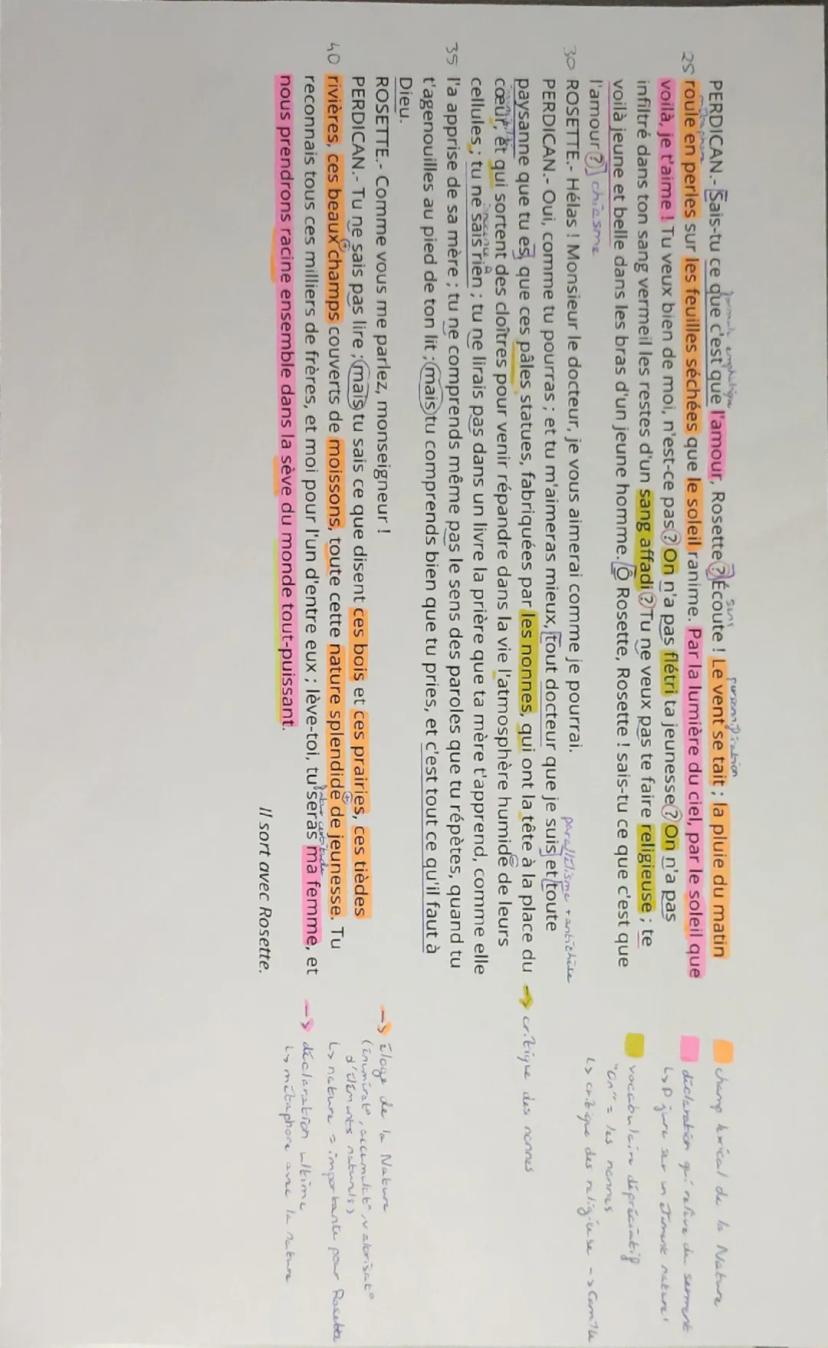 PERDICAN.- Sais-tu ce que c'est que l'amour, Rosette ? Écoute ! Le vent se tait ; la pluie du matin
25 roule en perles sur les feuilles séchées que le soleil ranime. Par la lumière du ciel, par le soleil que
voilà, je t'aime ! Tu veux bien de moi, n'est-ce pas ? On n'a pas flétri ta jeunesse ? On n'a pas
infiltré dans ton sang vermeil les restes d'un sang affadi ? Tu ne veux pas te faire religieuse ; te
voilà jeune et belle dans les bras d'un jeune homme. Ô Rosette, Rosette ! sais-tu ce que c'est que
l'amour ? chiasme
30 ROSETTE.- Hélas ! Monsieur le docteur, je vous aimerai comme je pourrai.
PERDICAN.- Oui, comme tu pourras ; et tu m'aimeras mieux, tout docteur que je suis et toute
parallélisme + antithèse
paysanne que tu es, que ces pâles statues, fabriquées par les nonnes, qui ont la tête à la place du
cœur, et qui sortent des cloîtres pour venir répandre dans la vie l'atmosphère humide de leurs
cellules ; tu ne sais rien ; tu ne lirais pas dans un livre la prière que ta mère t'apprend, comme elle
35 l'a apprise de sa mère ; tu ne comprends même pas le sens des paroles que tu répètes, quand tu
t'agenouilles au pied de ton lit ; mais tu comprends bien que tu pries, et c'est tout ce qu'il faut à
Dieu.
ROSETTE.- Comme vous me parlez, monseigneur !
PERDICAN.- Tu ne sais pas lire ; mais tu sais ce que disent ces bois et ces prairies, ces tièdes
40 rivières, ces beaux champs couverts de moissons, toute cette nature splendide de jeunesse. Tu
reconnais tous ces milliers de frères, et moi pour l'un d'entre eux ; lève-toi, tu seras ma femme, et
nous prendrons racine ensemble dans la sève du monde tout-puissant.
Il sort avec Rosette.
champ lexical de la Nature
déclaration qui relève du serment
vocabulaire dépréciatif
"on" = les nonnes
↳ critique des religieuse
→ critique des nonnes
→ éloge de la Nature
d'éléments naturels)
↳ nature = importante pour Rosette
→ déclaration ultime
↳ métaphore avec la nature